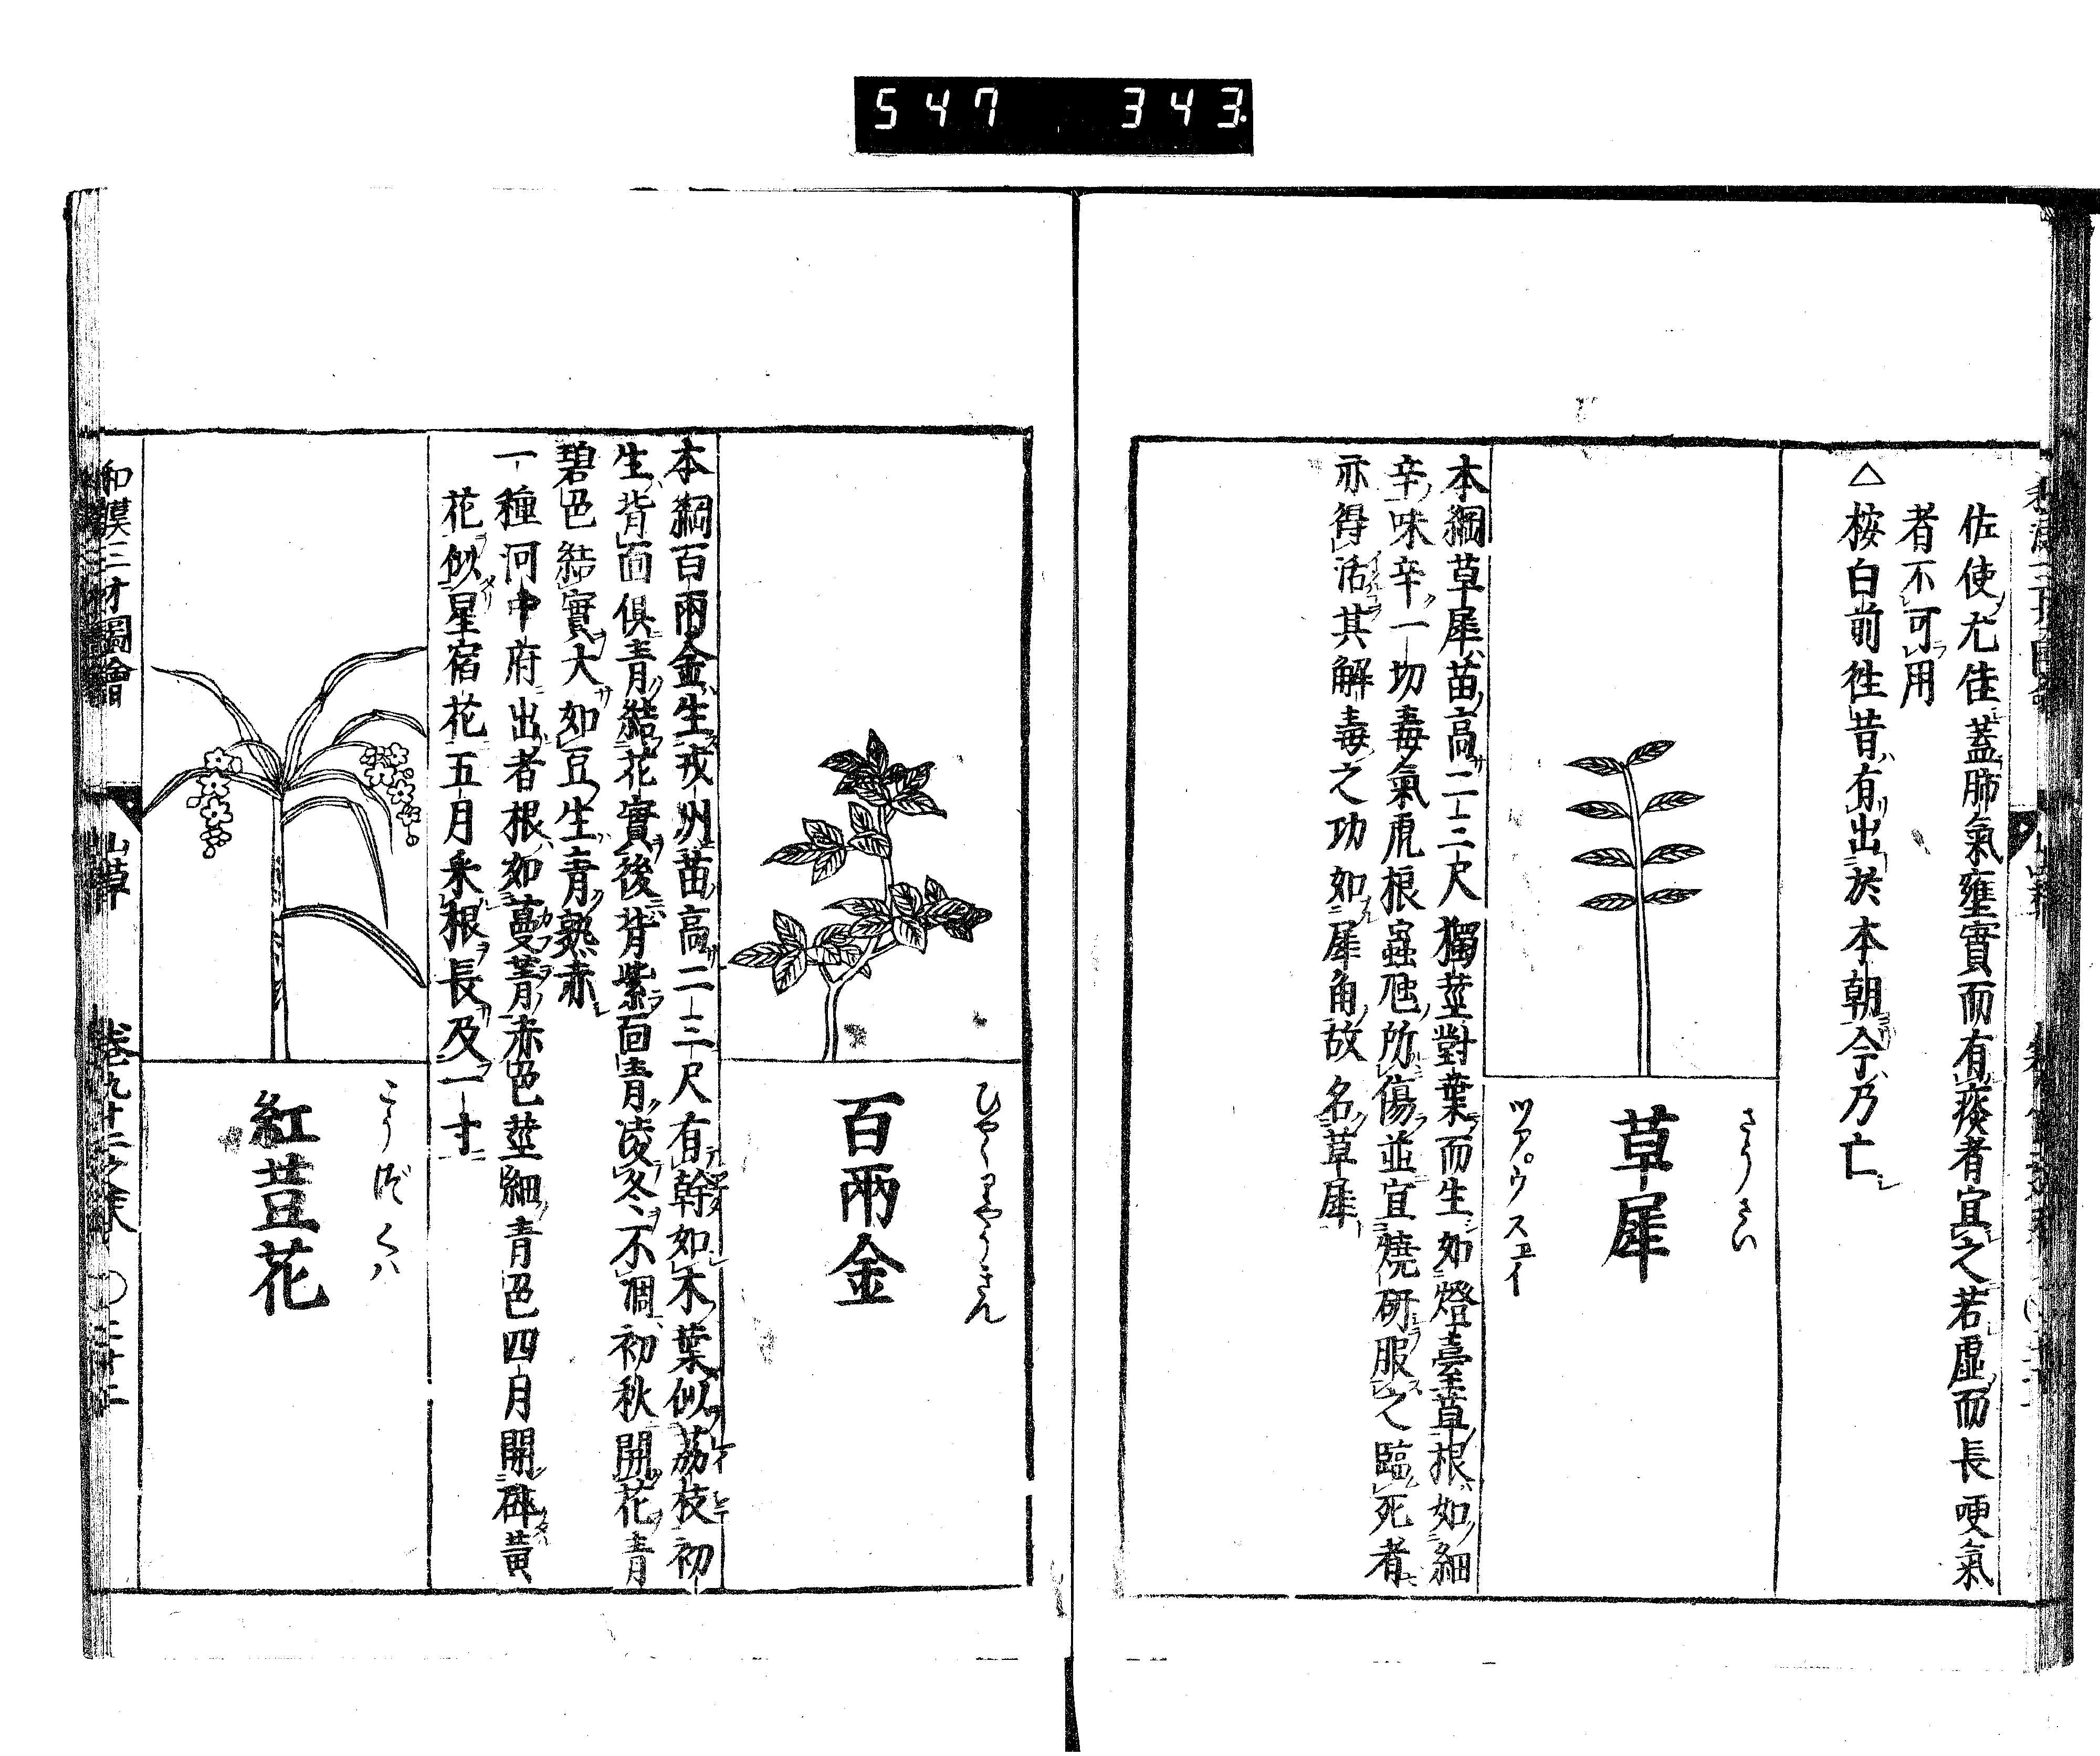 547 343
佐使尤佳蓋肺氣壅實而有痰者宜之若虛而長哽氣
者不可用
△按白前徃昔有出於本朝今乃亡
さうさい
草犀
ツア゚ウ スヱイ
本綱草犀苗高二三尺獨莖對葉而生如燈臺草根如細
辛味辛一切毒氣虎狼蟲虺所傷並宜燒研服之臨死者
亦得活其解毒之功如犀角故名草犀
ひやくりやうきん
百兩金
本綱百兩金生戎州苗高二三尺有幹如木葉似荔枝初
生背面俱青結花實後背紫面青凌冬不凋初秋開花青
碧色結實大如豆生青熟赤
一種河中府出者根如蔓菁赤色莖細青色四月開碎黃
花似星宿花五月采根長及一寸
こうづくハ
紅荳花
和漢三才圖會 山草 卷九十二之末 〇二十二